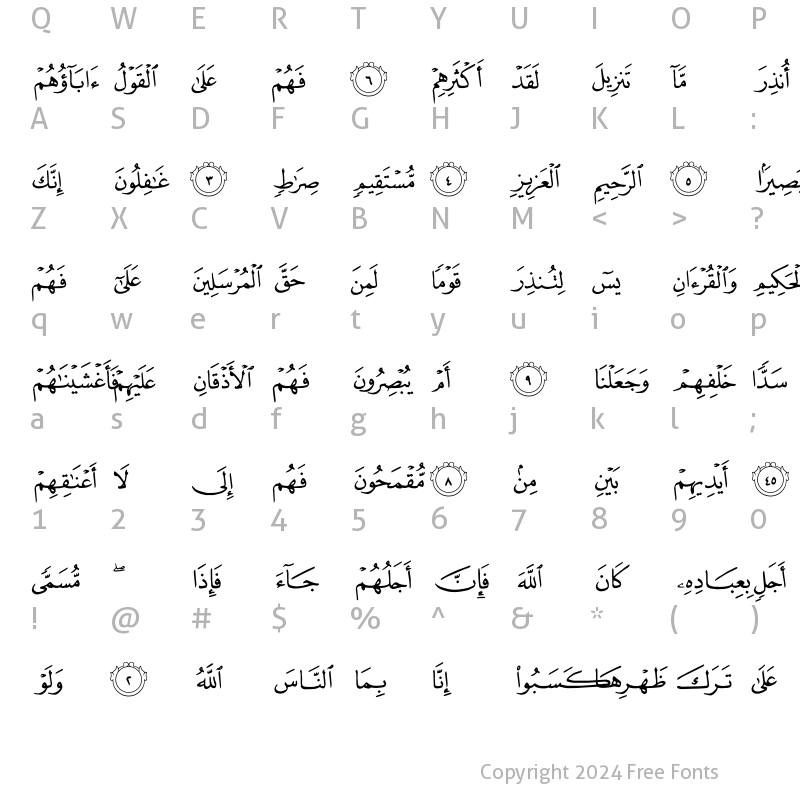 Q W E R T Y U I O P
ءَابَآؤُهُمۡ ٱلۡقَوۡلُ عَلَىٰ فَهُمۡ ٦ أَكۡثَرِهِمۡ لَقَدۡ تَنزِيلَ مَّآ أُنذِرَ
A S D F G H J K L :
إِنَّكَ غَٰفِلُونَ ٣ صِرَٰطٖ مُّسۡتَقِيمٖ ٤ ٱلۡعَزِيزِ ٱلرَّحِيمِ ٥ بَصِيرَۢا
Z X C V B N M < > ?
فَهُمۡ عَلَىٰٓ ٱلۡمُرۡسَلِينَ حَقَّ لَمِنَ قَوۡمٗا لِتُنذِرَ يسٓ وَٱلۡقُرۡءَانِ ٱلۡحَكِيمِ
q w e r t y u i o p
فَأَغۡشَيۡنَٰهُمۡ عَلَيۡهِمۡ ٱلۡأَذۡقَانِ فَهُمۡ يُبۡصِرُونَ أَمۡ ٩ وَجَعَلۡنَا خَلۡفِهِمۡ سَدّٗا
a s d f g h j k l ;
أَعۡنَٰقِهِمۡ لَا إِلَى فَهُم مُّقۡمَحُونَ ٨ مِنۢ بَيۡنِ أَيۡدِيهِمۡ ٤٥
1 2 3 4 5 6 7 8 9 0
مُّسَمّٗى ۖ فَإِذَا جَآءَ أَجَلُهُمۡ فَإِنَّ ٱللَّهَ كَانَ بِعِبَادِهِۦ أَجَلٖ
! @ # $ % ^ & * ( )
وَلَوۡ ٢ ٱللَّهُ ٱلنَّاسَ بِمَا إِنَّا كَسَبُواْ ظَهۡرِهَا تَرَكَ عَلَىٰ
Copyright 2024 Free Fonts